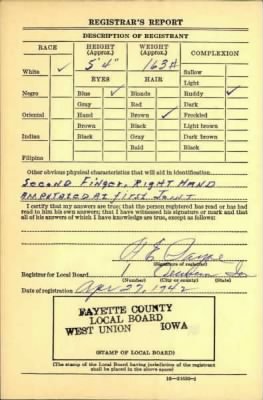 REGISTRAR'S REPORT
DESCRIPTION OF REGISTRANT
RACE HEIGHT (Approx.) WEIGHT (Approx.) COMPLEXION
5' 4" 163#
White ✓ Sallow
EYES HAIR Light
Negro Blue ✓ Blonde Ruddy ✓
Gray Red Dark
Oriental Hazel Brown ✓ Freckled
Brown Black Light brown
Indian Black Gray Dark brown
Bald Black
Filipino
Other obvious physical characteristics that will aid in identification
Second Finger, Right Hand
amputated at first joint
I certify that my answers are true; that the person registered has read or has had
read to him his own answers; that I have witnessed his signature or mark and that
all of his answers of which I have knowledge are true, except as follows:
(Signature of registrar)
Registrar for Local Board
(Number) (City or county) (State)
Date of registration Apr 27, 1942
FAYETTE COUNTY
LOCAL BOARD
WEST UNION IOWA
(STAMP OF LOCAL BOARD)
(The stamp of the Local Board having jurisdiction of the registrant
shall be placed in the above space)